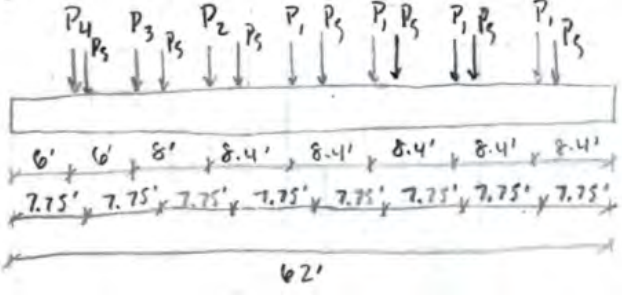 P4 Ps P3 Ps P2 Ps P1 Ps P1 Ps P1 Ps P1 Ps
6' 6' 8' 8.4' 8.4' 8.4' 8.4' 8.4'
7.75' 7.75' 7.75' 7.75' 7.75' 7.75' 7.75' 7.75'
62'